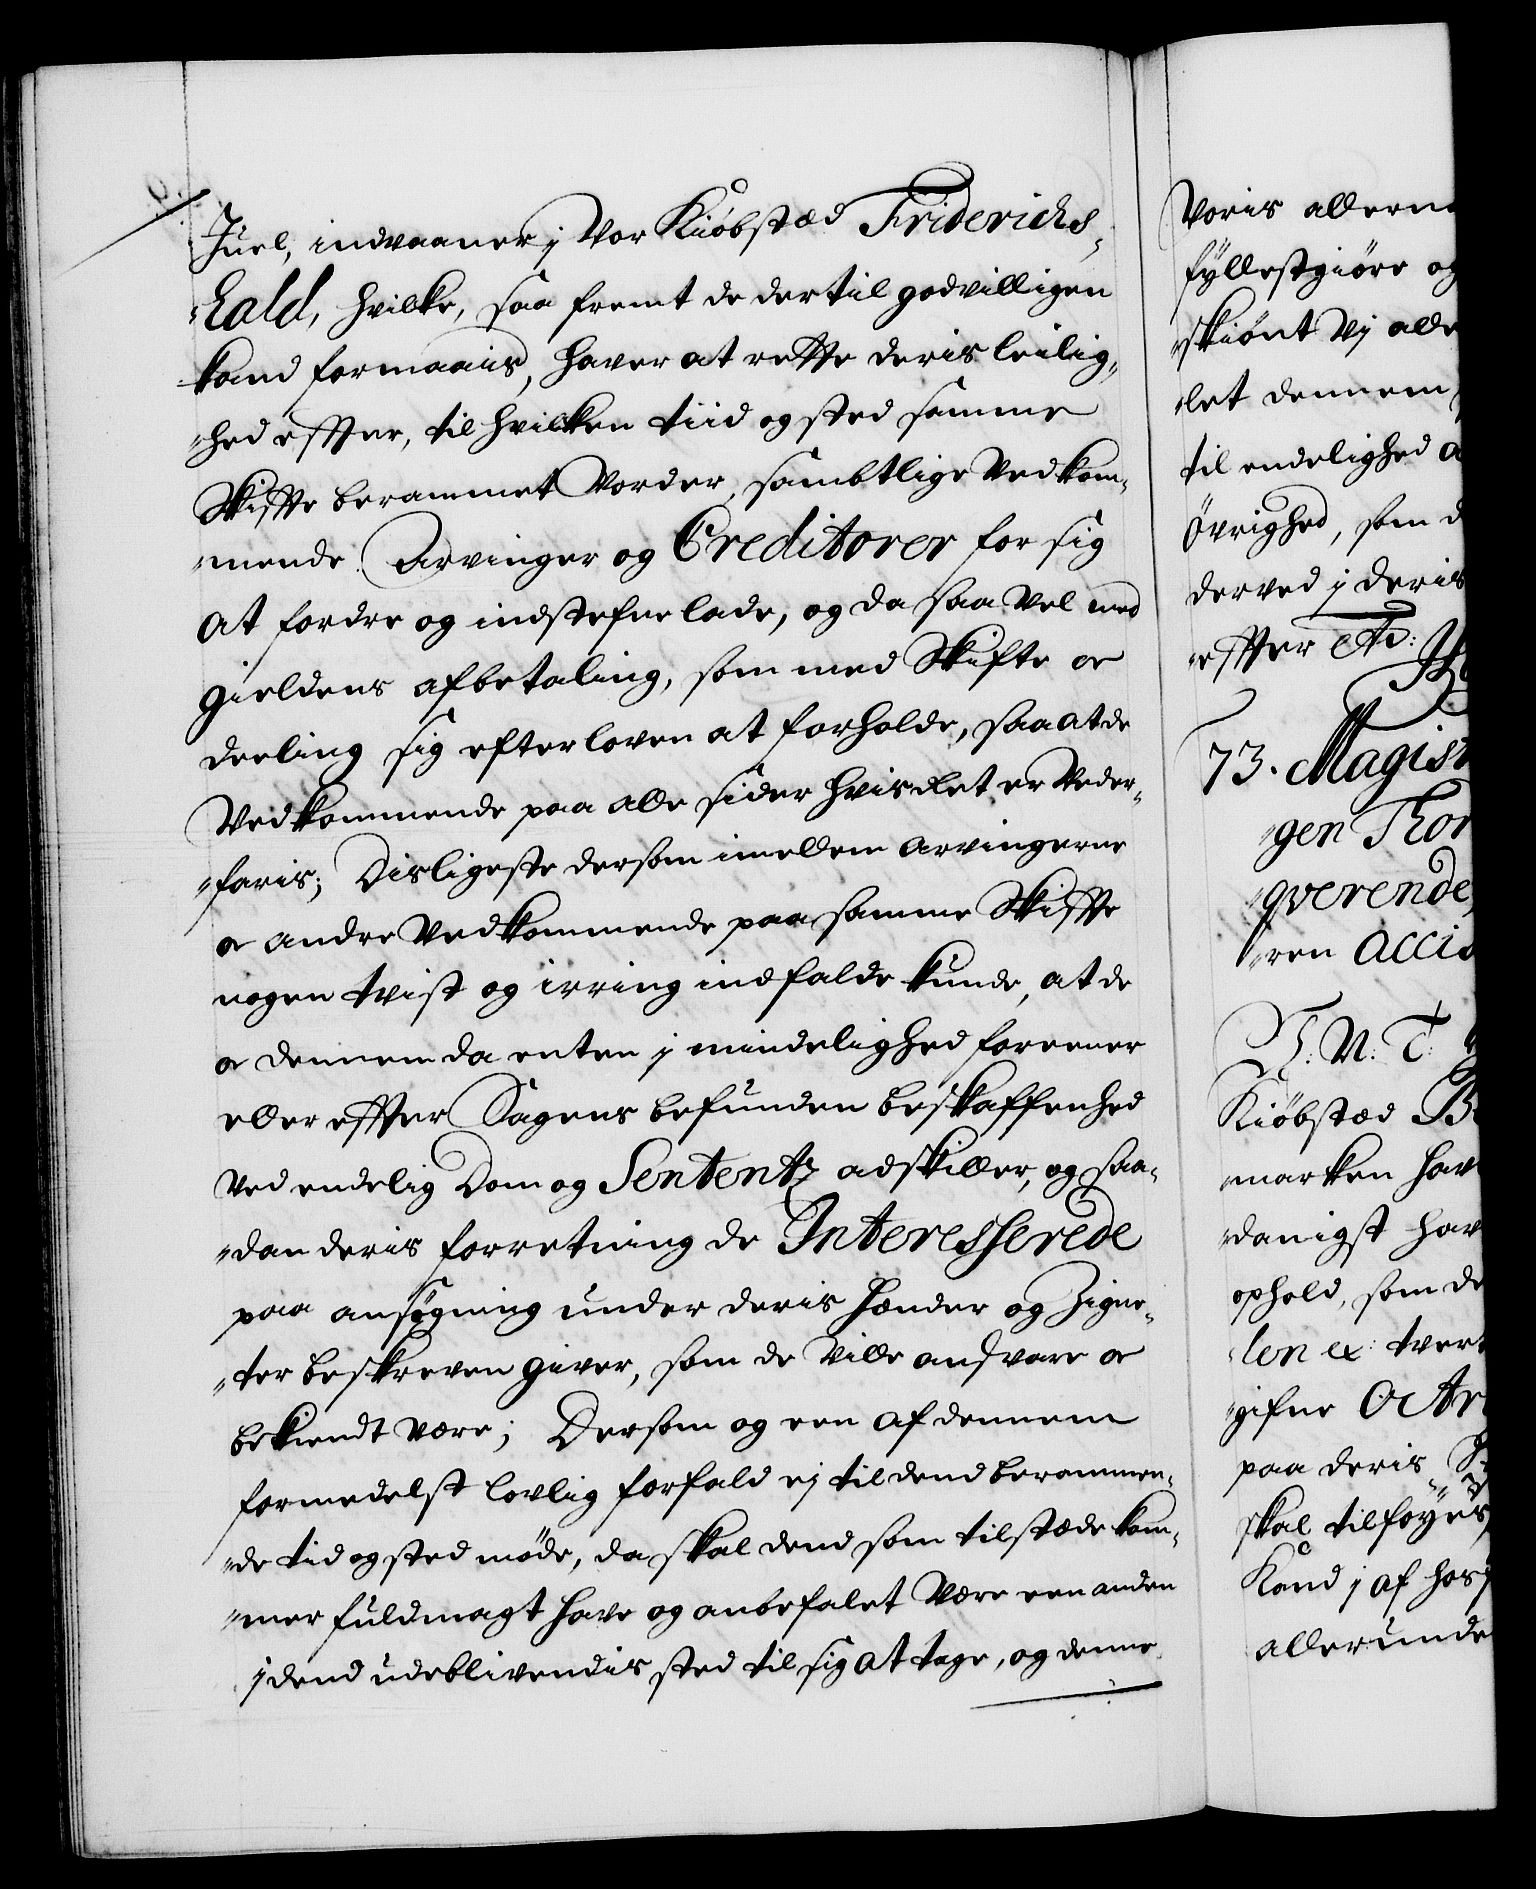 Juel, indvaaner j Vor Kiöbstæd Friderichs¬
¬hald, hvilke, saa fremt de dertil godvilligen
kand formaais, haver at rette deris leilig¬
¬hed effter, til hvilken tiid og sted samme
Skiffte berammet Vorder, sambtlige Vedkom¬
¬mende Arvinger og Creditorer for sig
at fordre og indstefne lade, og da saa vel med
gieldens afbetaling, som med Skifte oc
deeling sig efter loven at forholde, saa at de
Vedkommende paa alle sider hvis Ret er Veder¬
¬faris; Disligeste dersom imellem Arvingerne
oc andre Vedkommende paa samme Skiffte
nogen tvist og irring indfalde kunde, at de
oc dennem da enten j mindelighed foreener
eller effter Sagens befunden beskaffenhed
ved endelig Dom og Sententz adskiller, og saa¬
¬dan deris forretning de Interesserede
paa ansøgning under deris Hænder og Zigne¬
¬ter beskreven giver, som de ville andsvare oc
bekiendt være; Dersom og een af dennem
formedelst lovlig forfald ej til dend berammen¬
¬de tid og sted møde, da skal dend som tilstæde kom¬
¬mer fuldmagt have og anbefalet Være een anden
j dend udeblivendis sted til sig at tage, og denne
Voris allern
fyllestgiöre og
skiönt Vj alle
¬let dennem
til endelighed
Övrighed, som d
derved j deris
effter etc:
73. Magist
¬gen Thor
¬qverende,
¬ren Accis
T: N: T:
Kiöbstæd B
marken hav
¬danigst hav
ophold, som de
¬len ex: tver
¬gifne
paa deris
skal tilføyes
Kand j af hos
allerunde